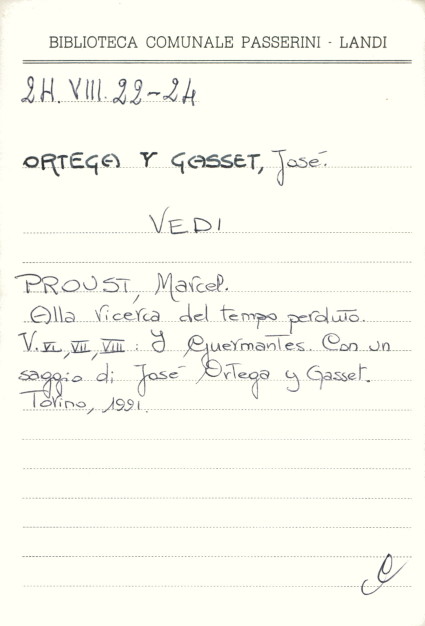 BIBLIOTECA COMUNALE PASSERINI - LANDI
2H. VIII. 22-24
ORTEGA Y GASSET, José.
VEDI
PROUST, Marcel.
Alla ricerca del tempo perduto.
V. VI, VII, VIII : I Guermantes. Con un
saggio di José Ortega y Gasset.
Torino, 1991.
C